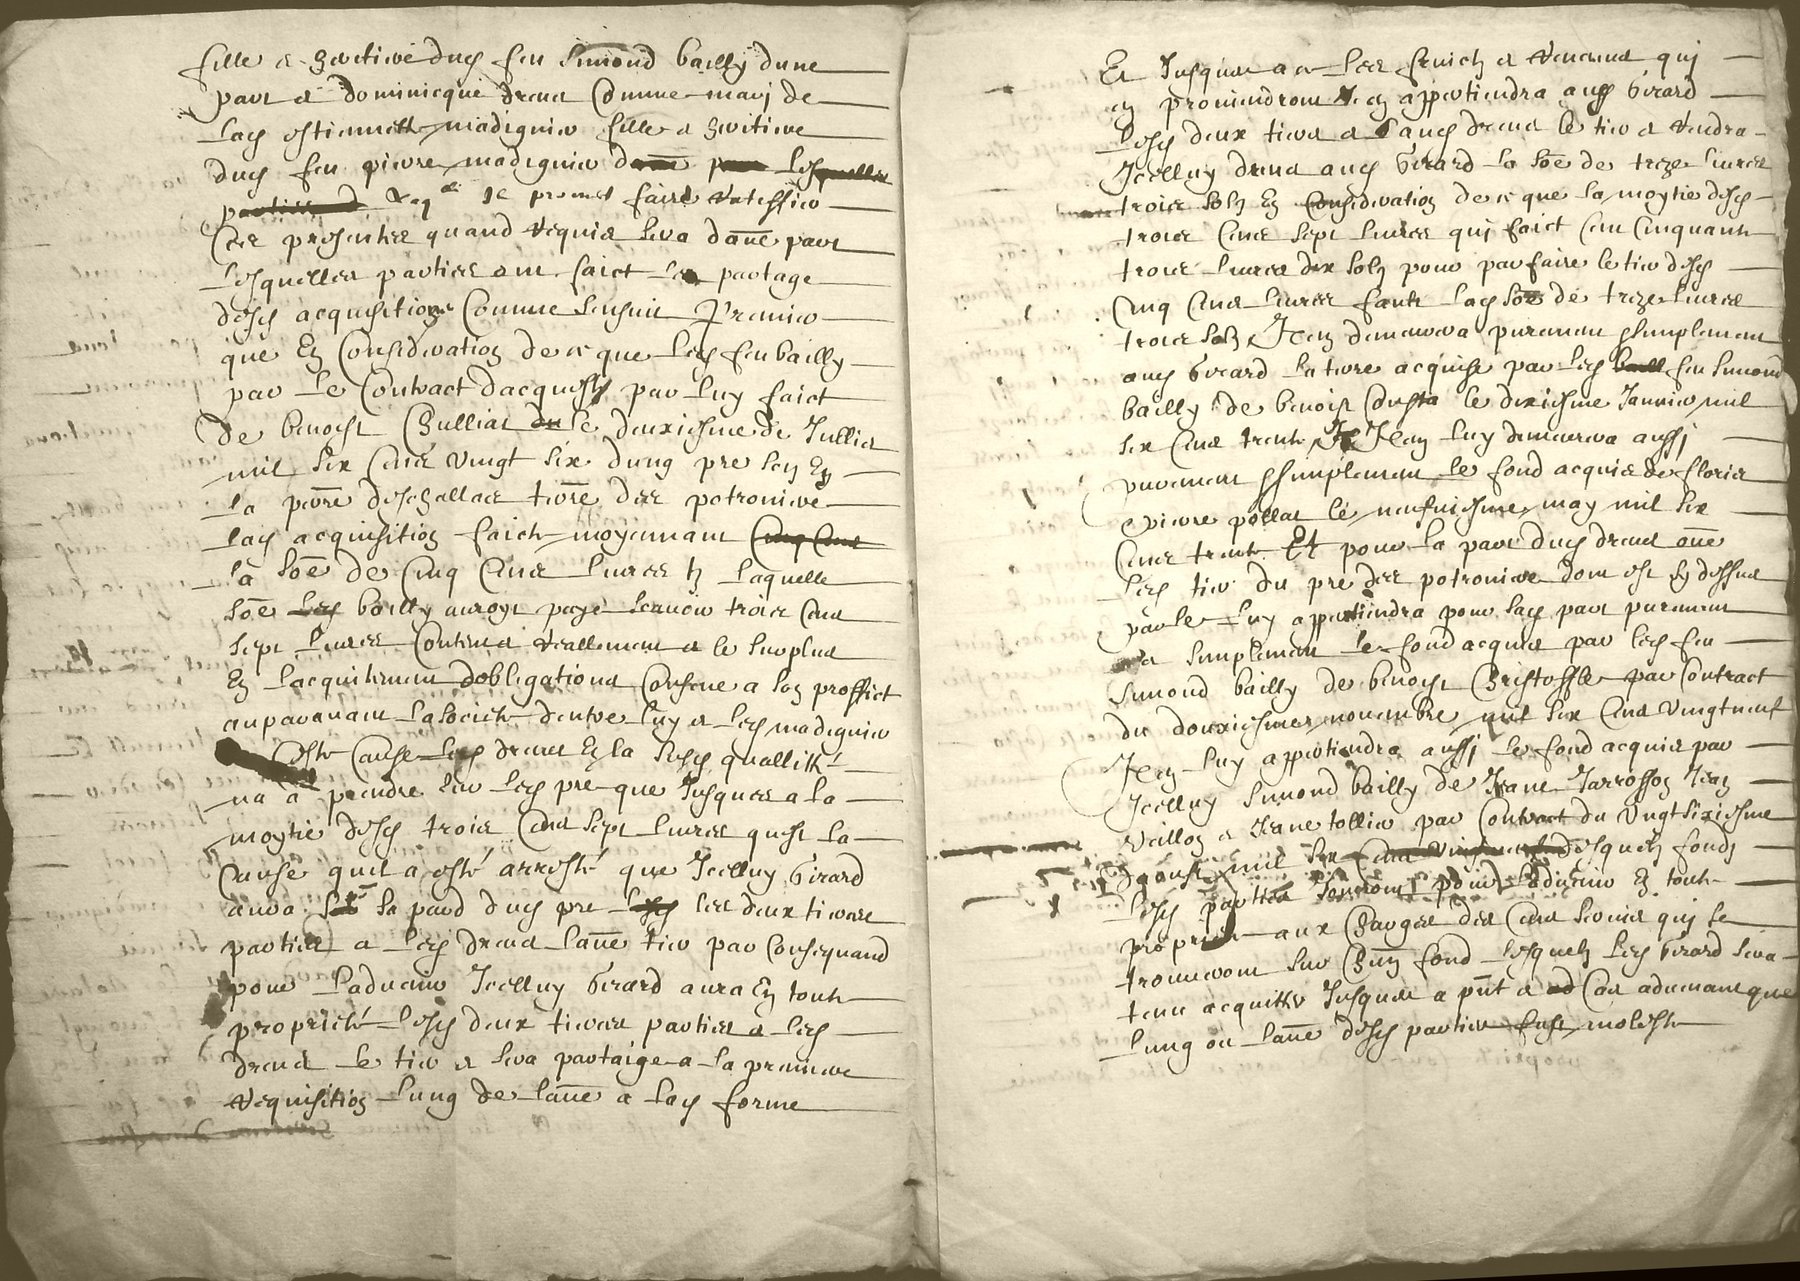 fille & heritiere dud feu Simond bailly dune
part & dominicque dreus Comme mary de
lad estiennette madignier fille & heritiere
dud feu pierre madignier
Il promet faire ratiffier
Ces presentes quand requis sera dāue part
Lesquelles parties ont faict le partage
desd acquisitions Comme sensuit Premier
que En Consideration de ce que led feu bailly
par le Contract dacquest par luy faict
de benoist Chulliat le deuxiesme de Jullied
mil six Cens vingt six dung pre seis En
la prōe deschallas terōe des petroniere
lad acquisition faicte moyennant
la soē de Cinq Cens livres tz laquelle
soē bailly auroyt paye scavoir trois Cens
sept livres Contens reallement & le surplus
En lacquitement dobligations Conceue a son proffict
auparavant la societe dentre luy & led madignier
Ceste Cause led dreus En la susd quallitte
na a prendre sur led pre que Jusques a la
moytie desd trois Cens sept livres quest la
Cause quil a esté arresté que Icelluy Girard
aura sa pard dud pre les deux tierse
parties & led dreus lāue tier par Consequand
pour ladvenir Icelluy Girard aura En toute
proprieté lesd deux tierses parties & led
dreus le tier & sera partaige a la premiere
requisition lung de lāue a lad forme
Et Jusques a ce les fruictz & revenus qui
en proviendront Il en appartiendra aud Girard
lesd deux tiers & aud dreus le tier & rendra
Icelluy dreus aud Girard la soē de treze livres
trois solz En Consideration de ce que la moytie desd
trois Cens sept livres qui faict Cent Cinquante
trois livres dix solz pour parfaire le tier desd
Cinq Cens livres faute lad soē de treze livres
trois solz Item demeurera purement & simplement
aud Girard la terre acquise par led feu Simond
bailly de benoist Costa le dixiesme Janvier mil
six Cens trente Item luy demeurera aussi
purement & simplement le fond acquis de floris
& pierre pollat le neufviesme may mil six
Cens trente Et pour la part dud dreus oūe
led tier du pre des petroniere dont est Cy dessus
parle luy appartiendra pour sad part purement
& simplement le fond acquis par led feu
Simond bailly de benoist Christoffle par Contract
du douxiesme novembre mil six Cens vingt neuf
Item luy appartiendra aussi le fond acquis par
Icelluy Simond bailly de Jeane Jarrosson Jean
veillon & Jeane tollier par Contract du vingt sixiesme
daoust mil six desquelz fondz
lesd parties Jouiront pour ladvenir En toute
proprieté aux Charges des Cens servis qui se
trouveront sur Chūn fond desquelz led Girard sera
tenu acquitter Jusques a pn̄t & Cas advenant que
lung ou lāue desd parties fust moleste